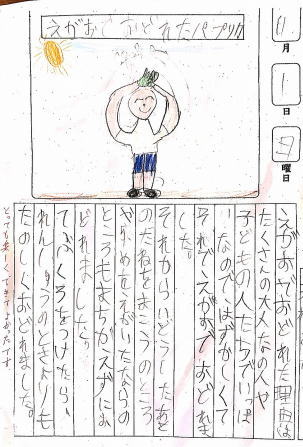 えがおでおどれたパプリカ
11月
1日
日曜日
えがおでおどれた理由は
たくさんの大人なの人や
子どもの人たちでいっぱ
いなので、はずかしくて
それでえがおでおどれま
した。
それからいどうしたあと
のたねをまこうのところ
やゆめをえがいたならの
ところもまちがえずにお
どれました。
てぶくろをつけたら、
れんしゅうのときよりも
たのしくおどれました。
とっても楽しくできてよかったです